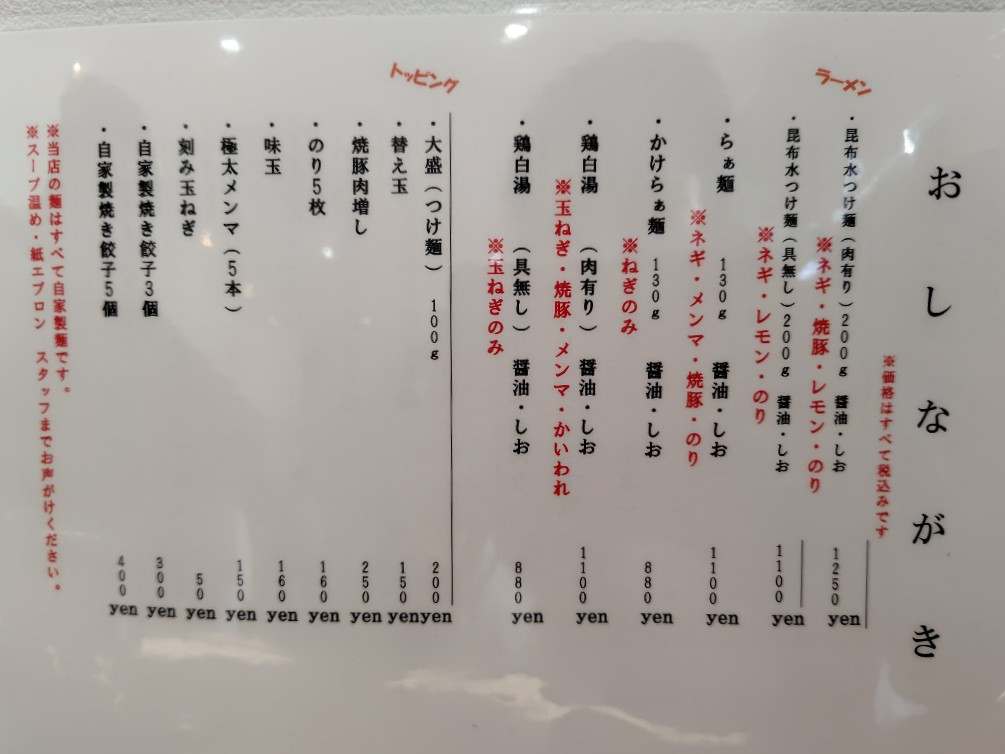 おしながき
※価格はすべて税込みです
ラーメン
・昆布水つけ麺(肉有り)200g 醤油・しお 1250yen
※ネギ・焼豚・レモン・のり
・昆布水つけ麺(具無し)200g 醤油・しお 1100yen
※ネギ・レモン・のり
・らぁ麺 130g 醤油・しお 1100yen
※ネギ・メンマ・焼豚・のり
・かけらぁ麺 130g 醤油・しお 880yen
※ねぎのみ
・鶏白湯 (肉有り) 醤油・しお 1100yen
※玉ねぎ・焼豚・メンマ・かいわれ
・鶏白湯 (具無し) 醤油・しお 880yen
※玉ねぎのみ
トッピング
・大盛(つけ麺) 100g 200yen
・替え玉 150yen
・焼豚肉増し 250yen
・のり5枚 160yen
・味玉 160yen
・極太メンマ(5本) 150yen
・刻み玉ねぎ 50yen
・自家製焼き餃子3個 300yen
・自家製焼き餃子5個 400yen
※当店の麺はすべて自家製麺です。
※スープ温め・紙エプロン スタッフまでお声がけください。